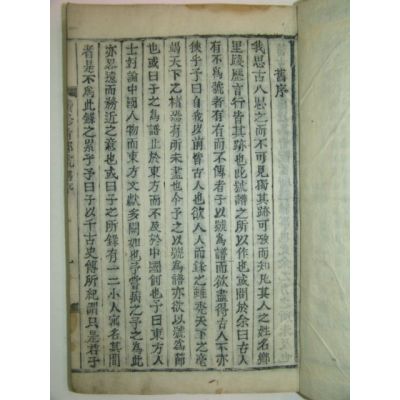 舊序
我思古人思之而不可見獨其跡可攷而知凡其人之姓名鄉
里踐歷言行皆其跡也此號譜之所以作也或問於余曰古人
有不爲號者有有而不傳者子以號爲譜而欲盡得古人不已
後乎子曰自我前皆古人也欲人人而錄之雖禿天下之毫
竭天下之楮恐有所未盡也今子之以號爲譜亦欲以號爲節
也或曰子之爲譜止於東方而不及於中國何也曰東方人
士好論中國人物而東方文獻多闕如也予嘗病之子之爲此
亦思遠而務近之意也或曰子之所錄有一二小人寓名其間
者是不爲此錄之累乎予曰子以千古史傳所紀謂只是君子